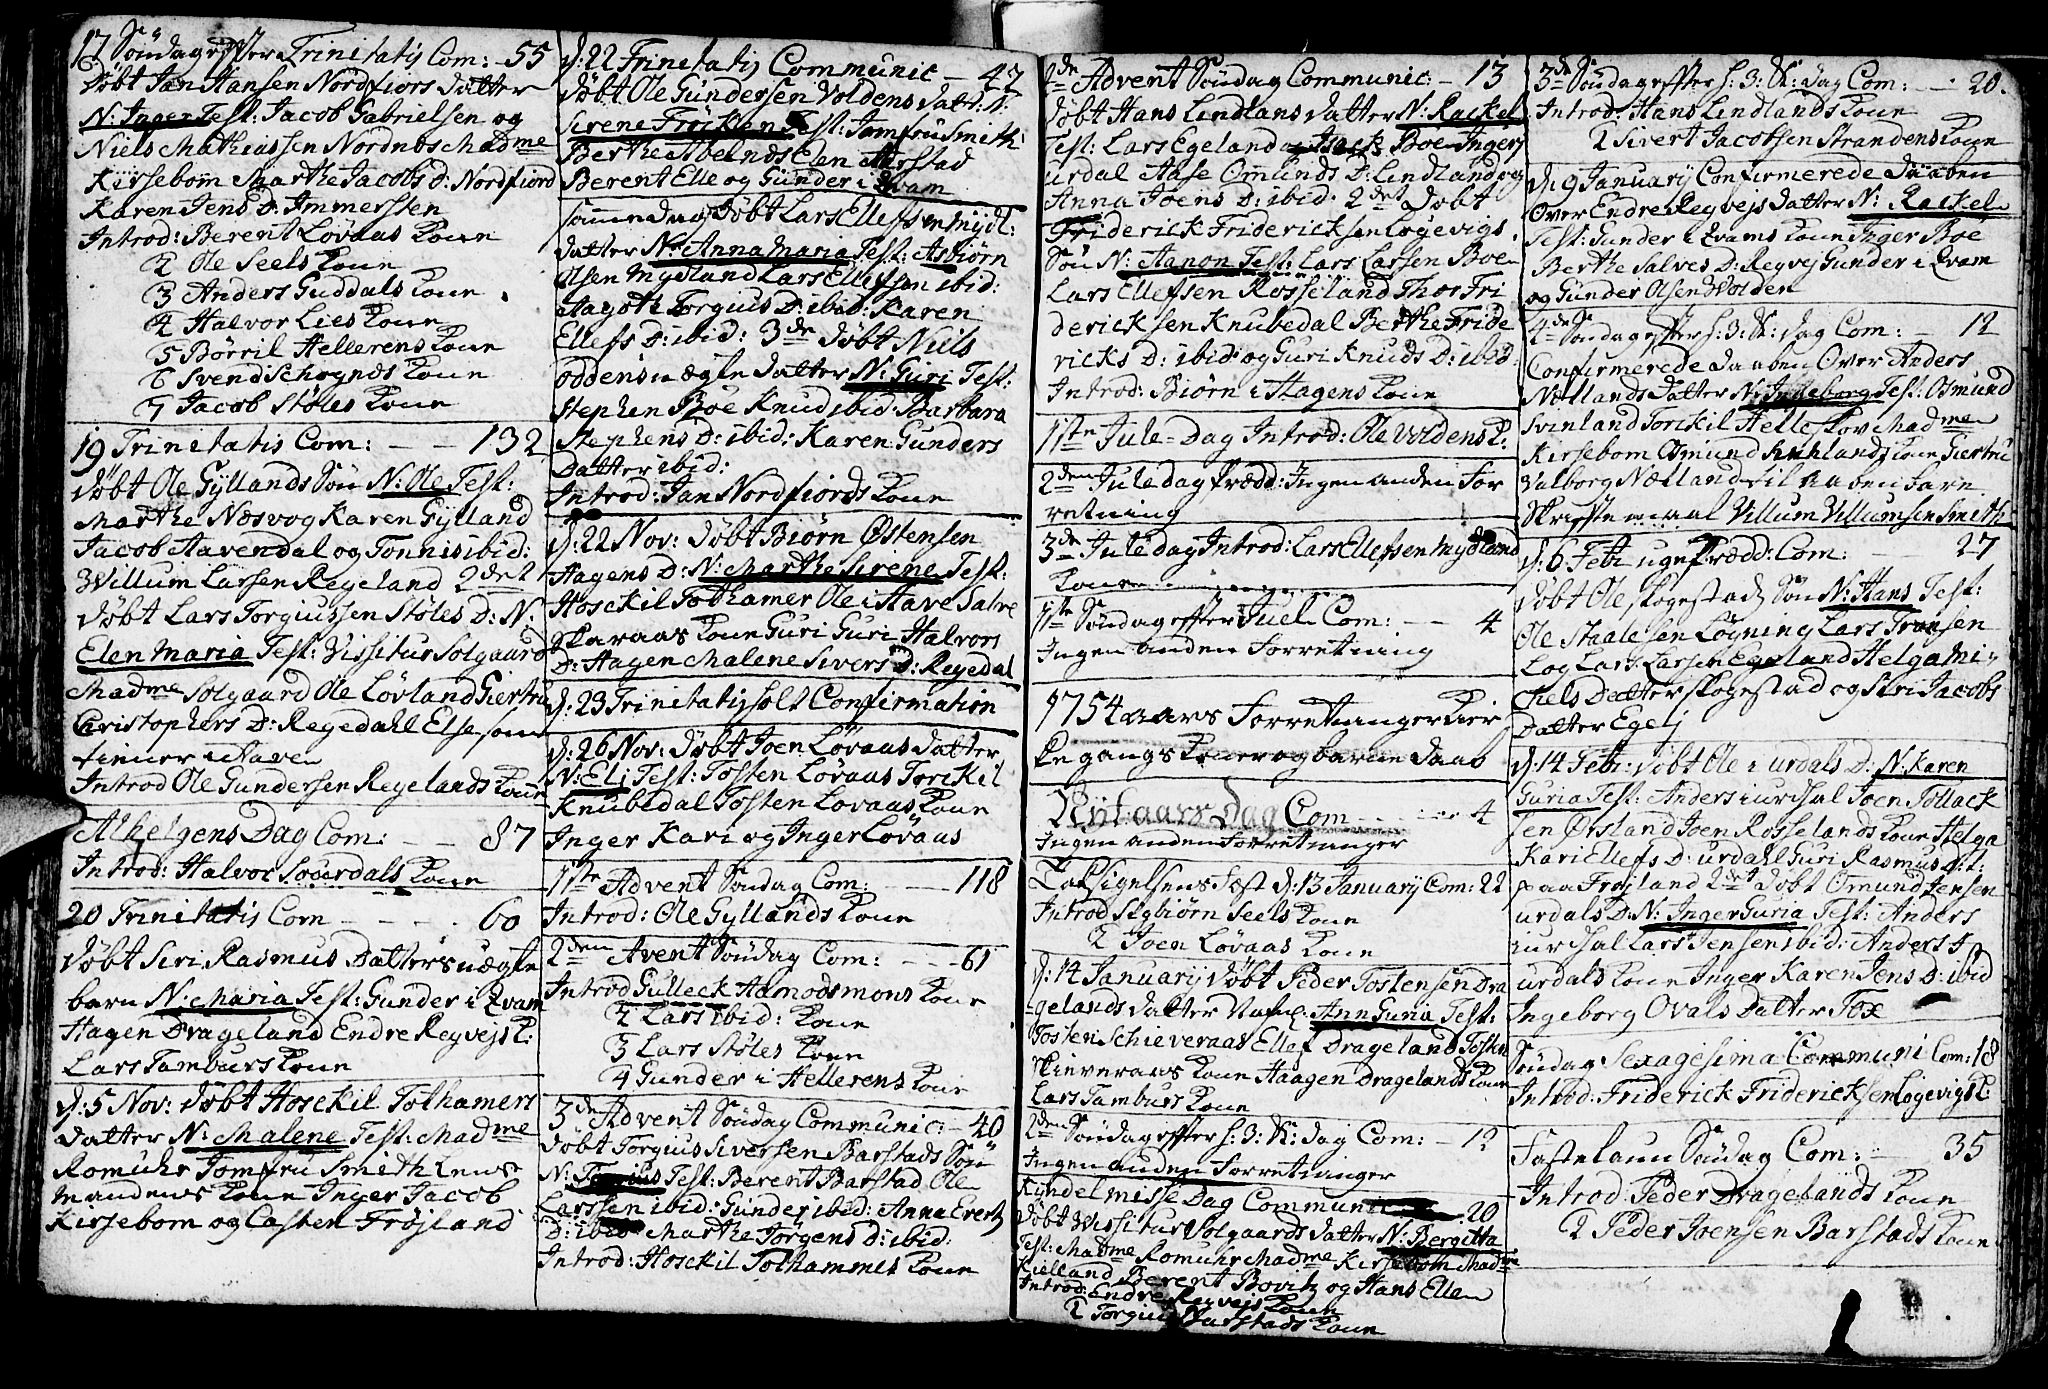 17 Søndag efter Trinitatis Com: 55
Døbt Jan Hansen Nordfiors datter
N: Inger Test: Jacob Gabrielsen og
Niels Mathiassen Nordnbs Madme
Kirsebom Marthe Jacobs D: Nordfiord
Karen Jens D: Immerssen
Introd: Berent Løvaas Kone
2 Ole Seels Kone
3 Anders Guddals Kone
4 Halvor Lies Kone
5 Børril Hellerens Kone
6 Svend Schognds Kone
7 Jacob Støles Kone
19 Trinitatis Com: - - 132
døbt Ole Gyllands Søn N: Ole Test:
Marthe Næsvog Karen Gylland
Jacob Aavendal og Tonnis ibid:
Willum Larsen Regeland 2det
døbt Lars Torgiussen Støles D: N:
Elen Maria Test: Vissitur Solgaard
Madme Solgaard Ole Løvland Giertru
Christophers D: Regedahl Else som
tiener i Haven
Introd Ole Gundersen Regelands Kone
Alhelgens Dag Com: - - 87
Introd: Halvor Soürdals Kone
20 Trinitatis Com - - - 60
døbt Siri Rasmus Datters uægte
barn N: Maria Test: Gunder i Qvam
Hagen Drageland Endre Regvejs K:
Lars Tamburs Kone
d: 5 Nov: døbt Hosckil Tolhamers
datter N: Malene Test: Madme
Romuhr Jomfru Smith Lens
mandens Kone Inger Jacob
Kirsebom og Casten Frøjland
d: 22 Trinitatis Communic - 42
døbt Ole Gundersen Voldens datr: N:
Sirene Test: Jomfru Smith
Berthe Elen Aarstad
Berent Elle og Gunder i Qvam
samme dag døbt Lars Ellefsen Mydl:
datter N: Anna Maria Test: Asbiørn
Olsen Mydland Lars Ellefsen ibid:
Aagothe Torgius D: ibid: Karen
Ellefs D: ibid: 3de døbt Niels
oddens uægte datter N: Guri Test:
Stephen Böe Knud ibid: Barbara
Stephens D: ibid: Karen Gunders
Datter ibid:
Introd: Jan Nordfiords Kone
d: 22 Nov: døbt Biørn Østensen
Hagens D: N: Marthe Sirene Test:
Hosckil Tolhamer Ole i Have Salve
Skaraas Kone Guri Guri Halvors
D: Hagen Malene Sivers D: Regedal
d: 23 Trinitatis holt Confirmation
d: 26 Nov: døbt Joen Løvaas datter
N: Eli Test: Tosten Løvaas Torckil
Knubedal Tosten Løvaas Kone
Inger Kari og Inger Løvaas
1ste Advent Søndag Com: - - 118
Introd: Ole Gyllands Kone
2den Avent Søndag Com: - - 61
Introd Gulleck Aamodsmons Kone
2 Lars ibid: Kone
3 Lars Støles Kone
4 Gunder i Hellerens Kone
3de Advent Søndag Communic: - 40
døbt Torgius Siversen Barstads Søn
N: Torgius Test: Berent Barstad Ole
Larssen ibid: Gunder ibid: Anna Evertz
D: ibid Marthe Jørgens D: ibid:
Introd: Hosckil Tolhammer Kone
4de Advent Søndag Communic: - 13
døbt Hans Lindlans datter N: Rackel
Test: Lars Egeland og Isack Böe Inger
urdal Aase Omunds D: Lindland og
Anna Joens D: ibid: 2det døbt
Friderick Fridericksen Løgevigs
Søn N: Aanon Test: Lars Larsen Boe
Lars Ellefsen Rosseland Thor Fri
dericksen Knubedal Berthe Fride
ricks D: ibid: og Guri Knuds D: ibid.
Introd: Biørn i Hagens Kone
1ste Jule-Dag Introd: Ole Voldens K:
2den Juledag Prædd: Ingen anden For
retning
3de Juledag Introd: Lars Ellefsen Mydland
Kone
1ste Søndag efter Juel Com: - - 4
Ingen anden Forretning
1754 aars Forretninger Kir
ke gangs Koner og børne Daab
Nyt aars Dag Com - - - 4
Ingen anden Forretninger
Taksigelsens fest d: 13 January Com: 22
Introd Asgbiørn Seels Kone
2 Joen Løvaas Kone
d: 14 January døbt Peder Tostensen Dra
gelands datter Nafnl: Ann Guria Test:
Tosten Schieveraas Ellef Drageland Tosten
Skieveraas Kone Haagen Dragelands Kone
Lars Tamburs Kone
2den Søndag efter h: 3: K: dag Com: - 12
Ingen anden Forretninger
Kyndelmisse Dag Communi 20
døbt Vissitur Solgaards datter N: Bergitta
Test: Madme Romuhr Madme Kirsebom Madme
Kielland Berent Bovitz og Hans Ellen
Introd: Endre Regvejs Kone
2 Torgius Barstads Kone
3de Søndag efter h: 3: K: dag Com: - - 20.
Introd: Hans Lindlands Kone
2 Sivert Jacobsen Strandens Kone
d: 9 January Confirmerede daaben
Over Endre Regvejs datter N: Rackel
Test: Gunder i Qvams Kone Inger Böe
Berthe Salves D: Regvej Gunder i Qvam
og Gunder Olsen Volden
4de Søndag efter h: 3: K: dag Com: - 12
Confirmerede daaben Over Anders
Netlands datter N: Ingeborg Test: Osmund
Svinland Torckil Helleskov Madmen
Kirsebom Osmund Kone Giertru
Valborg Netland
Skriftemaal Villum Villumsen Smith
d: 6 Feb: uge Prædd: Com: 27
døbt Ole Skogestad Søn N: Hans Test:
Ole Staalesen Løgning Lars Fransen
Log Lars Larsen Egeland Helga Mi
chels Datter Skogestad og Siri Jacobs
Datter Egelj
d: 14 Feb: døbt Ole i urdals D: N: Karen
Guria Test: Anders i urdal Joen Tollack
sen Ørsland Joen Rosselands Kone Helga
Kari Ellefs D: urdahl Guri Rasmus D:
paa Frøjland 2det døbt Omund Jensen
urdals D: N: Inger Guria Test: Anders
i urdhal Lars Jensen ibid: Anders I
urdals Kone Inger Karen Jens D: ibid
Ingeborg Ovals Datter Fox
Søndag Sexagesima Communi Com: 18
Introd: Friderick Fridericksen Løgevigs K:
Fastelaun Søndag Com: - 35
Introd: Peder Dragelands Kone
2 Peder Joensen Barstads Kone